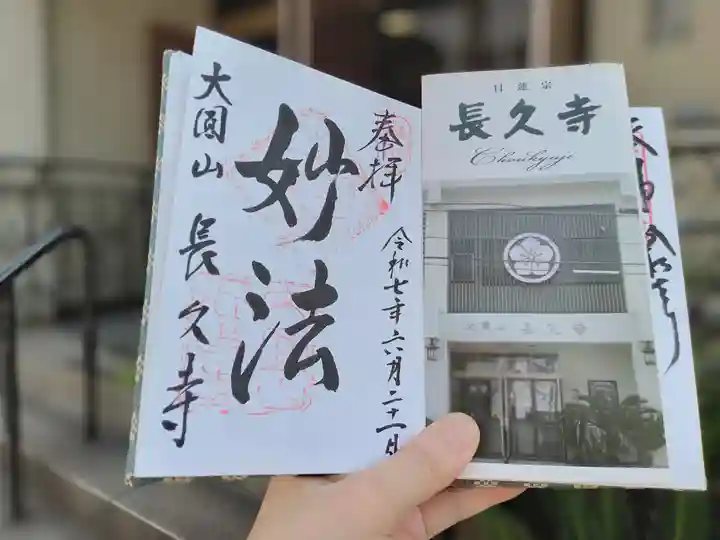 奉拝
令和七年六月二十一日
妙法
大圓山
長久寺
日蓮宗
長久寺
Choukyuji
長久寺